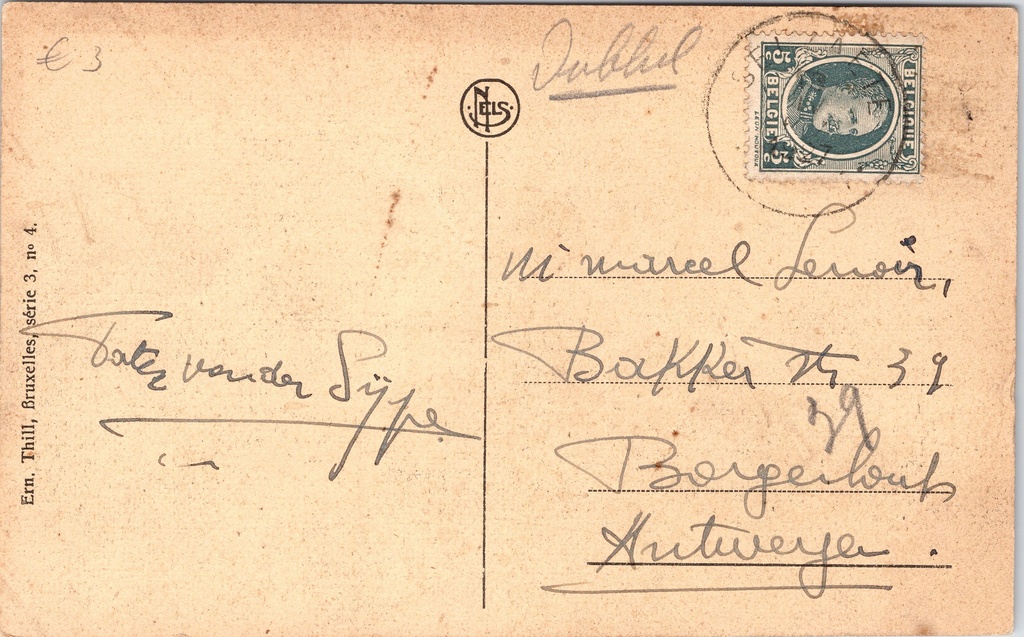 € 3
Dubbel
NELS
5c
BELGIE
5c
BELGIQUE
M marcel Lenoir,
Bakker str 39
39
Borgerhout
Antwerpen.
van der Sÿpe
Ern. Thill, Bruxelles, série 3, nº 4.